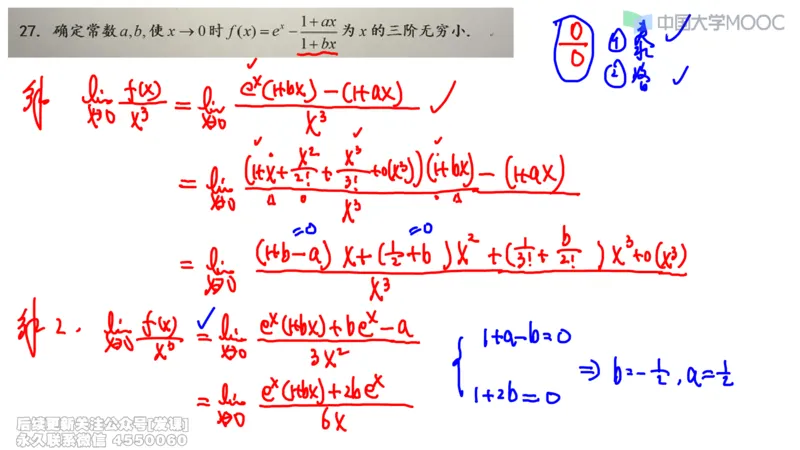 中国大学MOOC
27. 确定常数 a,b, 使 x → 0 时 f(x) = e^x − (1+ax)/(1+bx) 为 x 的三阶无穷小.
0/0 ① ✓
② 洛 ✓
解 lim_{x→0} f(x)/x³ = lim_{x→0} (e^x(1+bx)−(1+ax))/x³ ✓
= lim_{x→0} ((1+x+x²/2!+x³/3!+o(x³))(1+bx)−(1+ax))/x³
=0 =0
= lim_{x→0} ((1+b−a)x+(1/2+b)x²+(1/3!+b/2!)x³+o(x³))/x³
解2. lim_{x→0} f(x)/x³ ✓= lim_{x→0} (e^x(1+bx)+be^x−a)/3x²
= lim_{x→0} (e^x(1+bx)+2be^x)/6x
{ 1+a−b=0
1+2b=0 ⇒ b=−1/2, a=1/2
后续更新关注公众号[发课]
永久联系微信 4550060